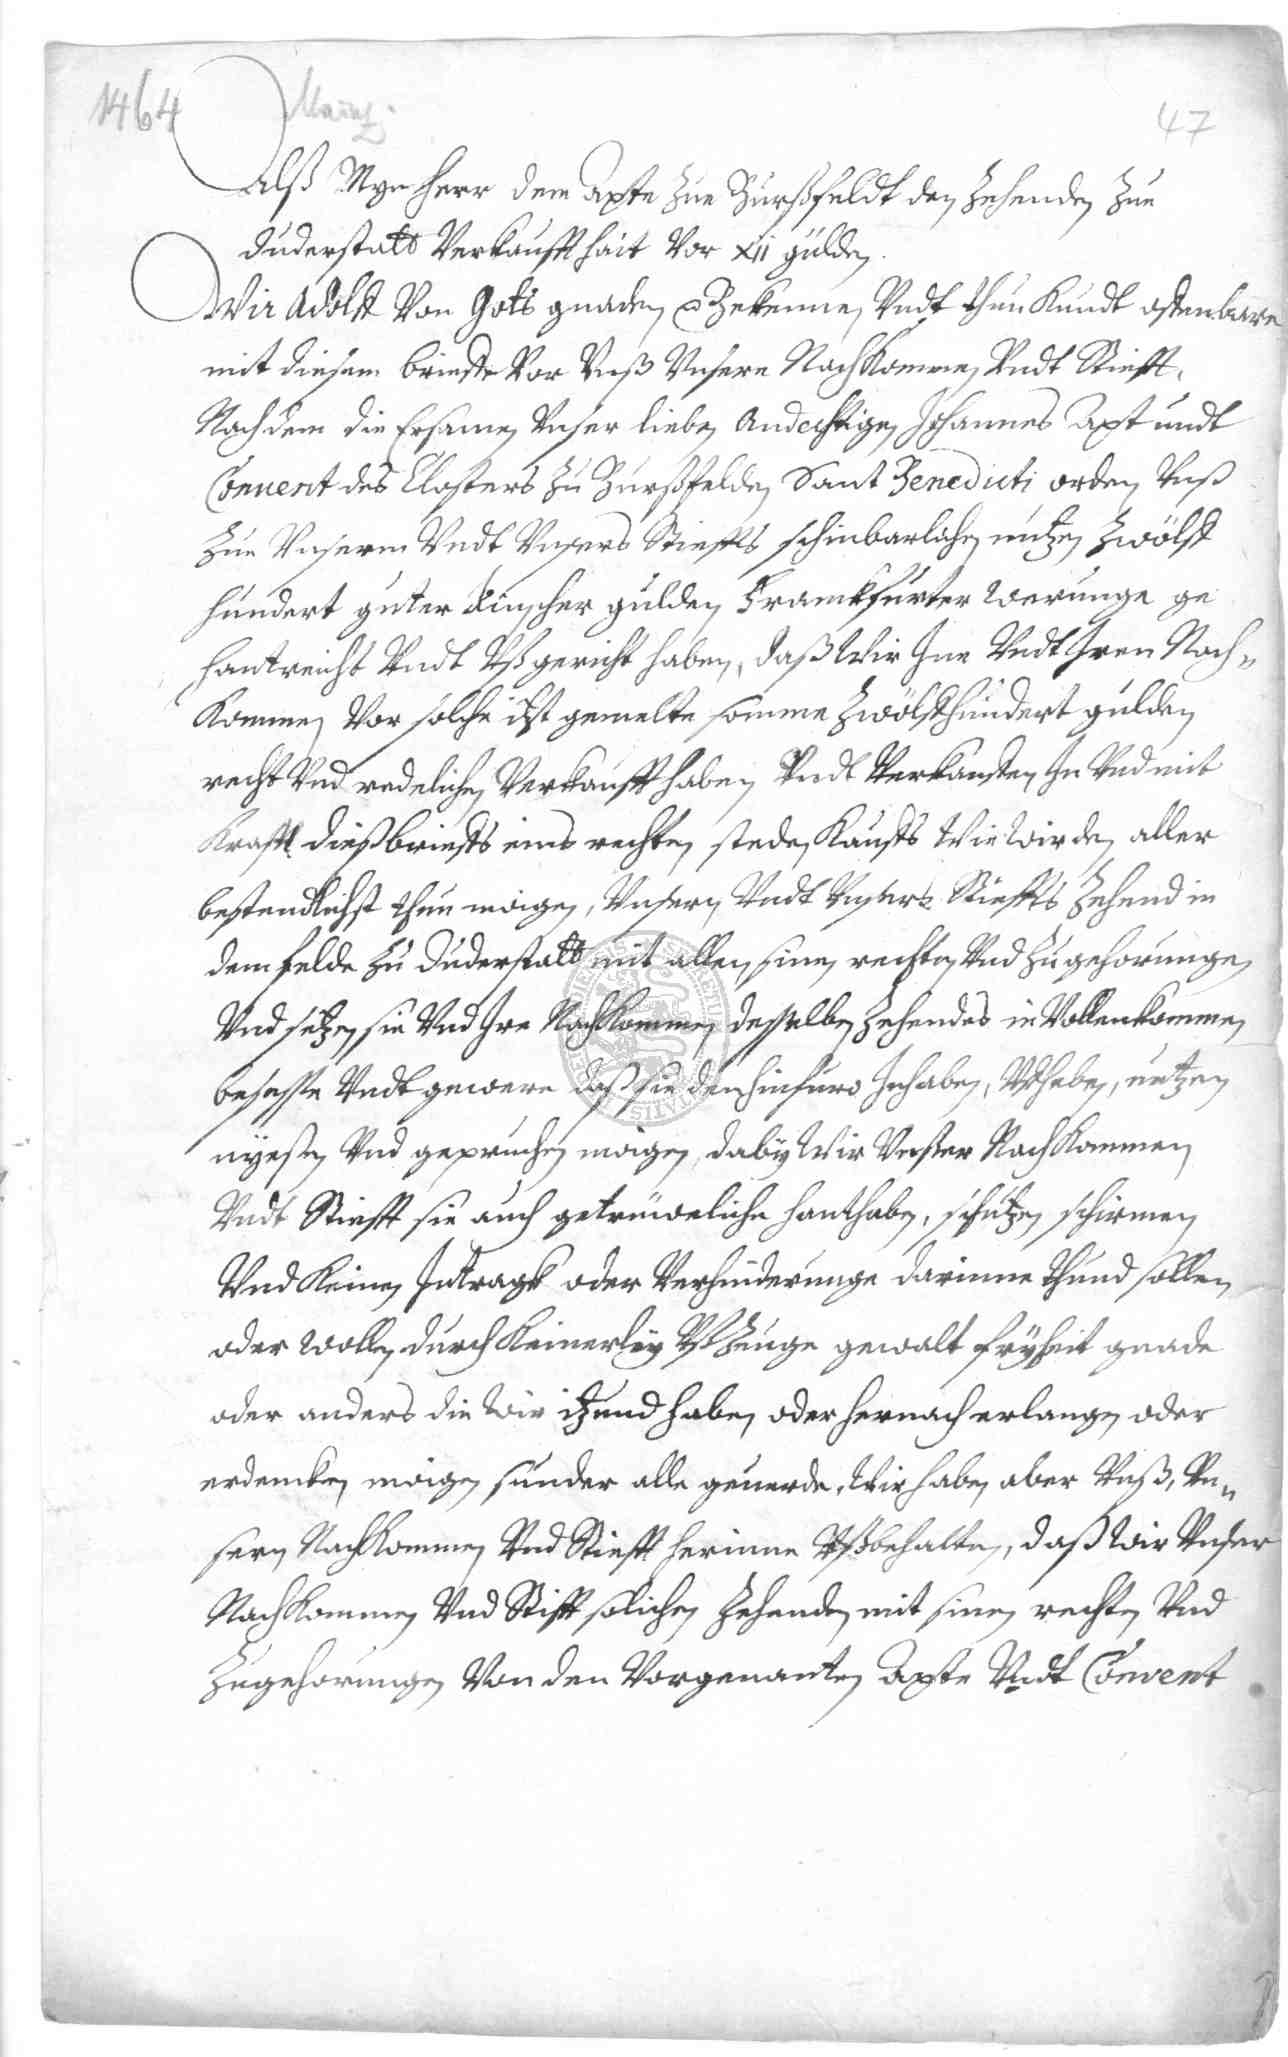 1464 Maintz.
47
Alß Myn Herr dem Apte zue Burßfeldt den Zehenden zue
Duderstatt Verkaufft hait Vor xii gulden.
Wir Adolff Von Gots gnaden p Bekennen Undt thun Kundt offenbare
mit diesem brieffe Vor Unß Unsere NachKommen Undt Stiefft,
Nachdem die Ersamen Unser lieben Andechtigen Johannes Apt undt
Convent des Closters zu Burßfelden Sant Benedicti orden Unß
zue Unserm Undt Unsers Stieffts schinbarlichen nutzen Zwölff
hundert guter Rinscher gulden Franckfurter werunge ge
hantreicht Undt Ußgericht haben, daß Wir Ine Undt Iren Nach=
Kommen Vor solche itzt gemelte somme Zwölffhundert gulden
recht Und redelichen Verkaufft haben Undt Verkauffen In Und mit
Krafft dieß brieffs eins rechten steden Kauffs Wie Wir den aller
bestendlichst thun moigen, Unsern Undt Unsers Stieffts Zehend in
dem felde zu Duderstatt mit allen sinen rechten Und zugehorungen
Und setzen sie Und Ire NachKommen desselben Zehendes in Vollenkommen
besesse Undt gewere daß sie den hinfuro Inhaben, Uffheben, nutzen
nyeßen Und gepruchen moigen, daby Wir Unßer NachKommen
Undt Stiefft sie auch getruweliche hanthaben, schutzen schirmen
Und Keinen Intragk oder Verhinderunge darinne thund sollen
oder wollen durch Keinerley Ußzuge gewalt fryheit gnade
oder anders die Wir itzund haben oder hernach erlangen oder
erdencken moigen sunder alle geuerde, Wir haben aber Unß, Un=
sern NachKommen Und Stiefft herinne Ußbehalten, daß Wir Unser
NachKommen Und Stifft solichen Zehenden mit sinen rechten Und
Zugehorungen Von den Vorgenanten Apte Undt Convent